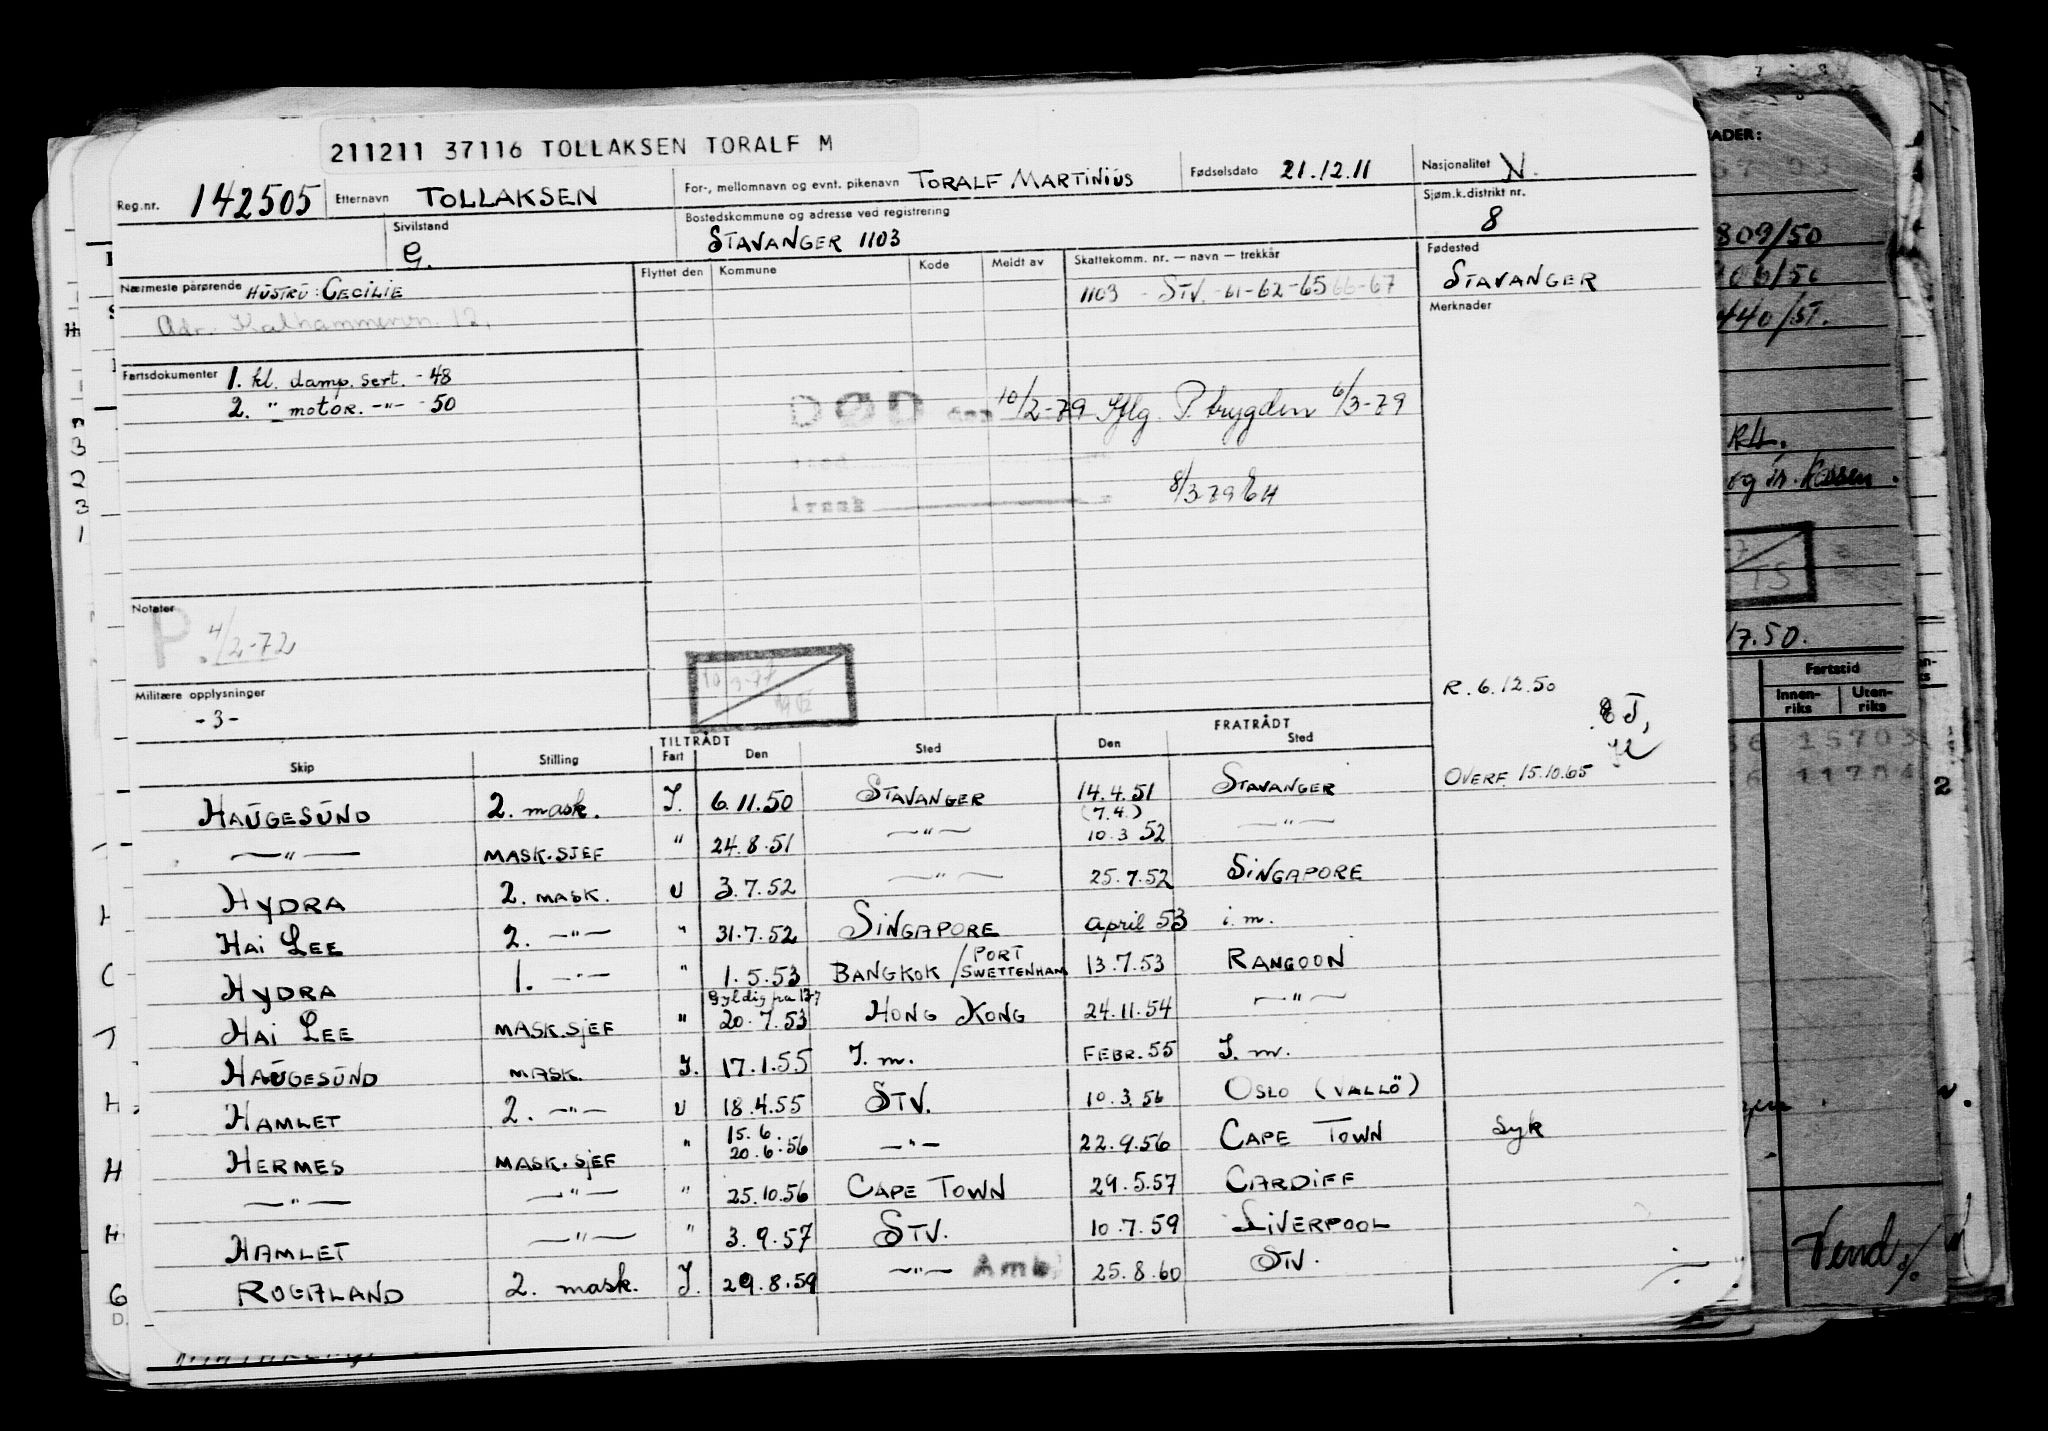 211211 37116 TOLLAKSEN TORALF M
Reg.nr. 142505 Etternavn TOLLAKSEN For-, mellomnavn og evnt. pikenavn TORALF MARTINIUS Fødselsdato 21.12.11 Nasjonalitet N.
Sivilstand G. Bostedskommune og adresse ved registrering STAVANGER 1103 Sjøm.k.distrikt nr. 8
Nærmeste pårørende HUSTRU: CECILIE Flyttet den Kommune Kode Meldt av Skattekomm. nr. — navn — trekkår Fødested STAVANGER
1103 - STV. -61-62-65 66-67
Adr. Kalhammervn. 12.
Merknader
Fartsdokumenter 1. kl. damp. sert. - 48
2. " motor. -"- - 50
DØD 10/2-79 Iflg. P. trygden 6/3-79
8/3-79 EH
Notater
P. 4/2-72
Militære opplysninger
-3-
R. 6.12.50
TILTRÅDT FRATRÅDT
Skip Stilling Fart Den Sted Den Sted
OVERF. 15.10.65
HAUGESUND 2. mask. I. 6.11.50 STAVANGER 14.4.51 (7.4.) STAVANGER
—"— MASK.SJEF " 24.8.51 —"— 10.3.52 —"—
HYDRA 2. MASK. U 3.7.52 —"— 25.7.52 SINGAPORE
HAI LEE 2. —"— " 31.7.52 SINGAPORE April 53 i.m.
HYDRA 1. —"— " 1.5.53 BANGKOK / PORT SWETTENHAM 13.7.53 RANGOON
HAI LEE MASK.SJEF " Gyldig fra 17/7 20.7.53 HONG KONG 24.11.54 —"—
HAUGESUND MASK. I. 17.1.55 I.m. FEBR. 55 I.m.
HAMLET 2. —"— U 18.4.55 STV. 10.3.56 OSLO (VALLÖ)
HERMES MASK.SJEF " 15.6. 20.6.56 —"— 22.9.56 CAPE TOWN syk
—"— —"— " 25.10.56 CAPE TOWN 29.5.57 CARDIFF
HAMLET —"— " 3.9.57 STV. 10.7.59 LIVERPOOL
ROGALAND 2. mask. I. 29.8.59 —"— Amb. 25.8.60 STV.
809/50
440/51.
R.H.
17.50.
Fartstid
Innen-riks Uten-riks
15703
Vend./.